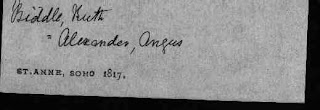 Biddle, Ruth
" Alexander, Angus
ST. ANNE, SOHO 1817,